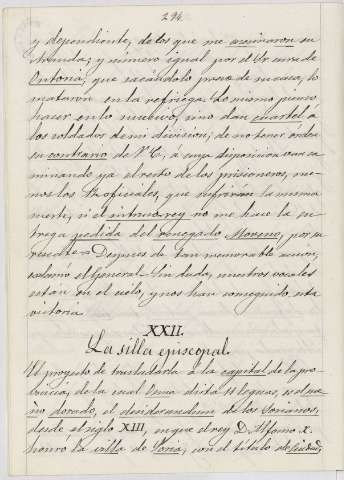 294
y dependiente, de los que me asesinaron en
Aranda; y número igual por el Sr. cura de
Ontoria, que sacándolo preso de su casa, lo
mataron en la refriega. Lo mismo pienso
hacer en lo sucesivo, uno dan cuartel á
los soldados de mi division, de no tener orden
en contrario de V. E., á cuya disposicion van ca-
minando ya el resto de los prisioneros, me-
nos los 12 oficiales, que sufrirán la misma
suerte, si el intruso rey no me hace la en-
trega pedida del renegado Moreno, por su
rescate." Despues de tan memorable
exclamó el General: Sin duda, nuestros vocales
están en el cielo, y nos han conseguido esta
victoria.
XXII.
La silla episcopal.
El proyecto de trasladarla á la capital de la pro-
vincia, de la cual Osma dista 11 leguas, es el sue-
ño dorado, el desiderandum de los Sorianos,
desde el siglo XIII, en que el rey D. Alfonso X.
honró la villa de Soria, con el título de ciudad;